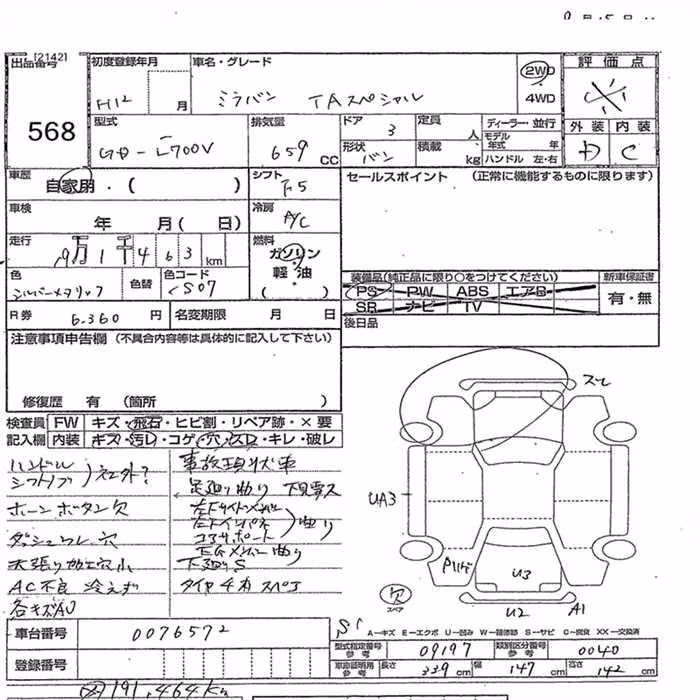 [2142]
出品番号
568
初度登録年月
H12 月
車名・グレード
ミラバン TAスペシャル
2WD
4WD
評価点
外装 内装
D C
型式
GD-L700V
排気量
659 CC
ドア
3
定員
人
ディーラー・並行
モデル年式 年
形状
バン
積載
kg
ハンドル 左・右
車歴
自家用・( )
シフト
F5
セールスポイント (正常に機能するものに限ります)
車検
年 月( 日)
冷房
A/C
走行
9万1千463km
燃料
ガソリン
軽・油
( )
色
シルバーメタリック
色替
色コード
S07
装備品(純正品に限り○をつけてください)
PS PW ABS エアB
SR ナビ TV
新車保証書
有・無
R券
6.360 円
名変期限 月 日
後日品
注意事項申告欄 (不具合内容等は具体的に記入して下さい)
修復歴 有 (箇所 )
検査員 FW キズ・飛石・ヒビ割・リペア跡・×要
記入欄 内装 キズ・汚レ・コゲ・穴・スレ・キレ・破レ
ハンドル
シフトノブ 社外?
ホーンボタン欠
ダッシュワレ穴
天張り加工穴小
AC不良 冷えず
各キズAU
事故現状車
足廻り曲り
左インパネ
コアサポート
曲り
下廻りS
タイヤ4本スペア
スレ
UA3
U3
U2
A1
欠
スペア
S1
車台番号
0076572
登録番号
A—キズ E—エクボ U—凹み W—補修跡 S—サビ C—腐食 XX—交換済
型式指定番号 参考
09197
類別区分番号 参考
0040
車庫証明用 参考
長さ 339 cm
幅 147 cm
高さ 142 cm
191,464km